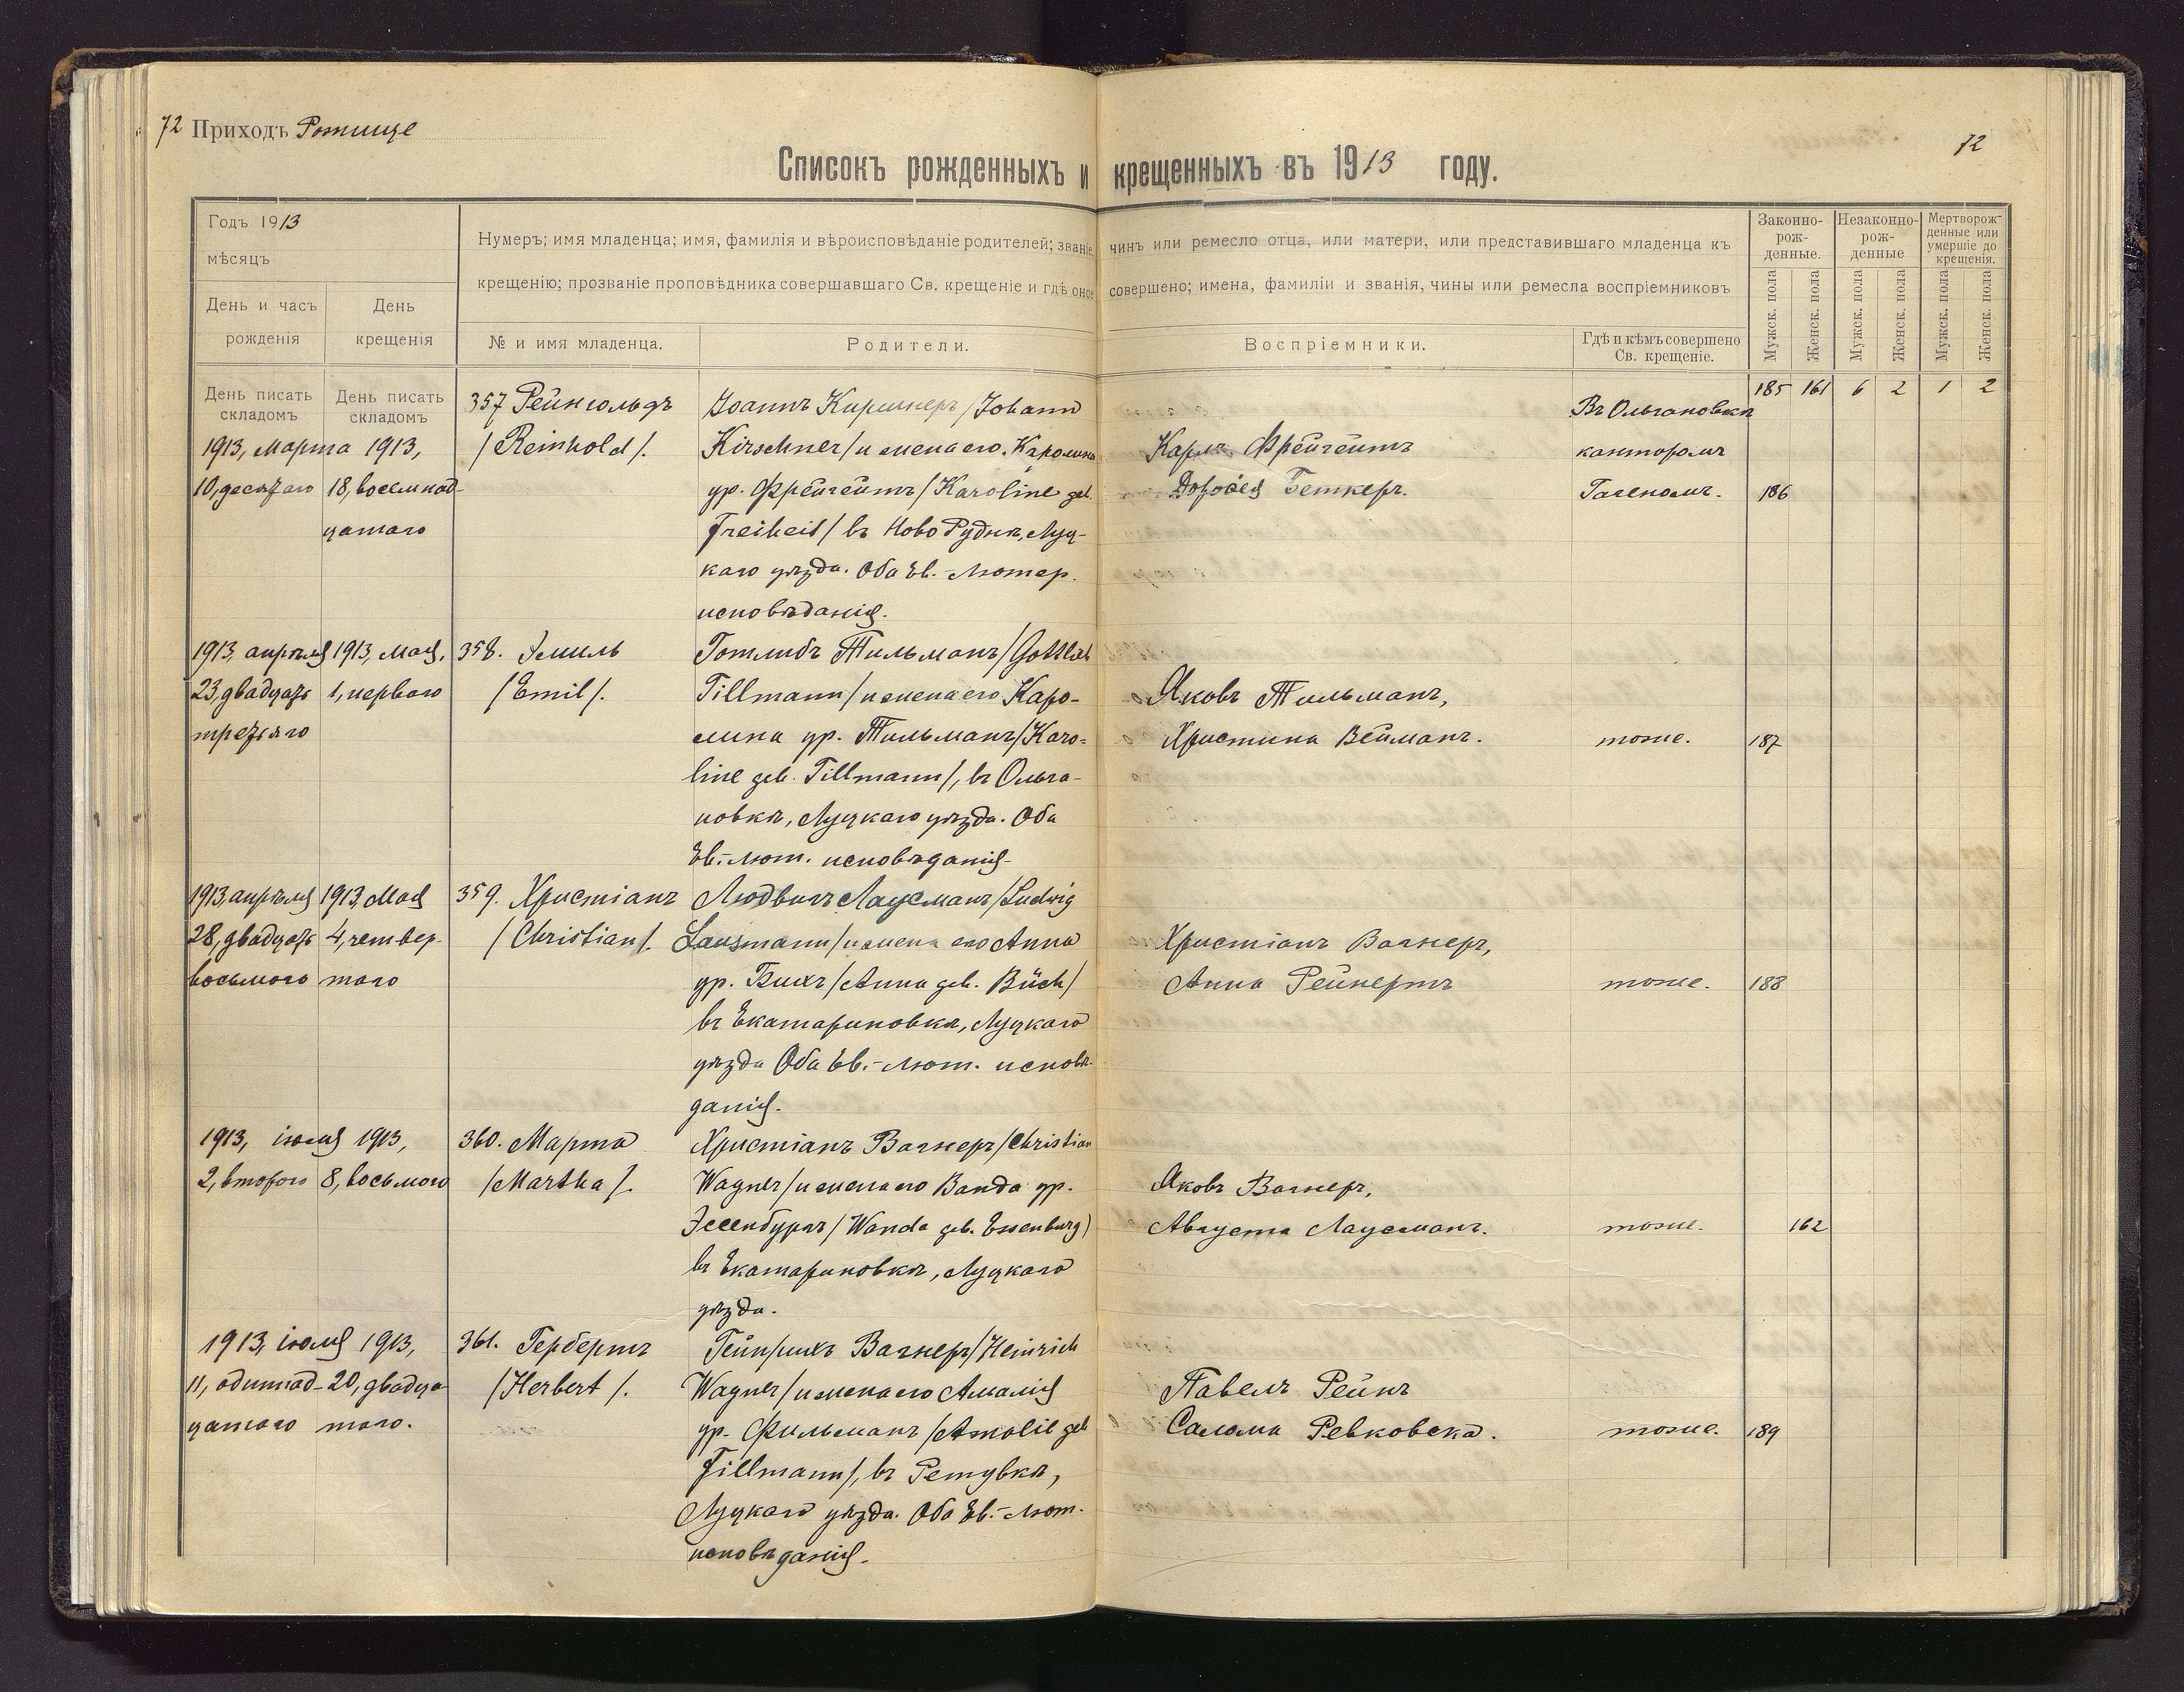 72 Приходъ Рожище
72
Списокъ рожденныхъ и крещенныхъ въ 1913 году.
Годъ 1913
мѣсяцъ
День и часъ рожденія
День крещенія
Нумеръ; имя младенца; имя, фамилія и вѣроисповѣданіе родителей; званіе, чинъ или ремесло отца, или матери, или представившаго младенца къ
крещенію; прозваніе проповѣдника совершавшаго Св. крещеніе и гдѣ оное совершено; имена, фамиліи и званія, чины или ремесла воспріемниковъ
№ и имя младенца.
Родители.
Воспріемники.
Гдѣ и кѣмъ совершено Св. крещеніе.
Законно-рож-денные.
Незаконно-рож-денные
Мертворож-денные или умершіе до крещенія.
Мужск. пола
Женск. пола
Мужск. пола
Женск. пола
Мужск. пола
Женск. пола
День писать складомъ
День писать складомъ
185 161 6 2 1 2
1913, Марта 1913,
10, десятаго 18, восемнад-
цатаго
357 Рейнгольдъ
/Reinhold/.
Іоаннъ Киршнеръ /Johann
Kirschner/ и жена его Каролина
ур. Фрейгейтъ /Karoline geb.
Freiheit/ въ Ново Руднѣ, Луц-
каго уѣзда. Оба Ев.-Лютер.
исповѣданія.
Карлъ Фрейгейтъ
Дорофея Беткеръ.
Въ Ольгановкѣ
канторомъ
Гагеномъ.
186
1913, апрѣля 1913, Мая,
23, двадцать 1, перваго
третьяго
358. Эмиль
/Emil/.
Готлибъ Тильманъ /Gottlieb
Tillmann/ и жена его Каро-
лина ур. Тильманъ /Karo-
line geb. Tillmann/, въ Ольга-
новкѣ, Луцкаго уѣзда. Оба
Ев.-лют. исповѣданія
Яковъ Тильманъ,
Христина Вейманъ.
тоже.
187
1913, апрѣля 1913, Мая
28, двадцать 4, четвер-
восьмого таго
359. Христіанъ
/Christian/.
Людвигъ Лаусманъ /Ludwig
Lausmann/ и жена его Анна
ур. Бихъ /Anna geb. Büch/
въ Екатариновкѣ, Луцкаго
уѣзда Оба Ев.-лют. исповѣ-
данія.
Христіанъ Вагнеръ,
Анна Рейнертъ
тоже.
188
1913, іюля 1913,
2, второго 8, восьмого
360. Марта
/Martha/.
Христіанъ Вагнеръ /Christian
Wagner/ и жена его Ванда ур.
Эссенбургъ /Wanda geb. Essenburg/
въ Екатариновкѣ, Луцкаго
уѣзда.
Яковъ Вагнеръ,
Августа Лаусманъ.
тоже.
162
1913, іюля 1913,
11, одиннад- 20, двадца-
цатаго таго.
361. Гербертъ
/Herbert/.
Гейнрихъ Вагнеръ /Heinrich
Wagner/ и жена его Амалія
ур. Фильманъ /Amalie geb
Fillmann/, въ Ретувкѣ,
Луцкаго уѣзда. Оба Ев.-лют.
исповѣданія.
Павелъ Рейнъ
Салома Ревковска.
тоже.
189